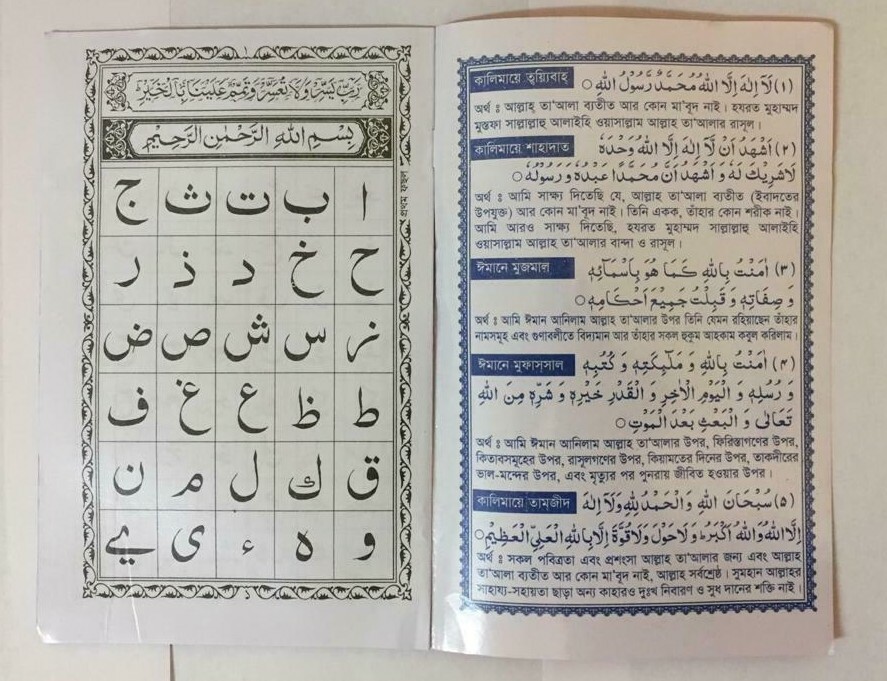 ۱
رَبِّ يَسِّرْ وَلَا تُعَسِّرْ وَتَمِّمْ عَلَيْنَا بِالْخَيْرِ
بِسْمِ اللهِ الرَّحْمٰنِ الرَّحِيْمِ
ا ب ت ث ج
ح خ د ذ ر
ز س ش ص ض
ط ظ ع غ ف
ق ك ل م ن
و ه ء ی ے
কালিমায়ে ত্বয়্যিবাহ্ (۱) لَآ اِلٰهَ اِلَّا اللهُ مُحَمَّدٌ رَّسُوْلُ اللهِ ○
অর্থ ঃ আল্লাহ্ তা'আলা ব্যতীত আর কোন মা'বূদ নাই। হযরত মুহাম্মদ
মুস্তফা সাল্লাল্লাহু আলাইহি ওয়াসাল্লাম আল্লাহ তা'আলার রাসূল।
কালিমায়ে শাহাদাত (۲) اَشْهَدُ اَنْ لَّا اِلٰهَ اِلَّا اللهُ وَحْدَهٗ
لَاشَرِيْكَ لَهٗ وَ اَشْهَدُ اَنَّ مُحَمَّدًا عَبْدُهٗ وَ رَسُوْلُهٗ ○
অর্থ ঃ আমি সাক্ষ্য দিতেছি যে, আল্লাহ তা'আলা ব্যতীত (ইবাদতের
উপযুক্ত) আর কোন মা'বূদ নাই। তিনি একক, তাঁহার কোন শরীক নাই।
আমি আরও সাক্ষ্য দিতেছি, হযরত মুহাম্মদ সাল্লাল্লাহু আলাইহি
ওয়াসাল্লাম আল্লাহ তা'আলার বান্দা ও রাসূল।
ঈমানে মুজমাল (۳) اٰمَنْتُ بِاللهِ كَمَا هُوَ بِاَسْمَآئِهٖ
وَ صِفَاتِهٖ وَ قَبِلْتُ جَمِيْعَ اَحْكَامِهٖ ○
অর্থ ঃ আমি ঈমান আনিলাম আল্লাহ তা'আলার উপর তিনি যেমন রহিয়াছেন তাঁহার
নামসমূহ এবং গুণাবলীতে বিদ্যমান আর তাঁহার সকল হুকুম আহকাম কবুল করিলাম।
ঈমানে মুফাস্সাল (۴) اٰمَنْتُ بِاللهِ وَ مَلٰٓئِكَتِهٖ وَ كُتُبِهٖ
وَ رُسُلِهٖ وَ الْيَوْمِ الْاٰخِرِ وَ الْقَدْرِ خَيْرِهٖ وَ شَرِّهٖ مِنَ اللهِ
تَعَالٰى وَ الْبَعْثِ بَعْدَ الْمَوْتِ ○
অর্থ ঃ আমি ঈমান আনিলাম আল্লাহ তা'আলার উপর, ফিরিস্তাগণের উপর,
কিতাবসমূহের উপর, রাসূলগণের উপর, কিয়ামতের দিনের উপর, তাকদীরের
ভাল-মন্দের উপর, এবং মৃত্যুর পর পুনরায় জীবিত হওয়ার উপর।
কালিমায়ে তাম্জীদ (۵) سُبْحَانَ اللهِ وَالْحَمْدُ لِلّٰهِ وَلَآ اِلٰهَ
اِلَّا اللهُ وَاللهُ اَكْبَرُ ط وَلَا حَوْلَ وَلَا قُوَّةَ اِلَّا بِاللهِ الْعَلِيِّ الْعَظِيْمِ ○
অর্থ ঃ সকল পবিত্রতা এবং প্রশংসা আল্লাহ তা'আলার জন্য এবং আল্লাহ
তা'আলা ব্যতীত আর কোন মা'বূদ নাই, আল্লাহ্ সর্বশ্রেষ্ঠ। সুমহান আল্লাহর
সাহায্য-সহায়তা ছাড়া অন্য কাহারও দুঃখ নিবারণ ও সুখ দানের শক্তি নাই।